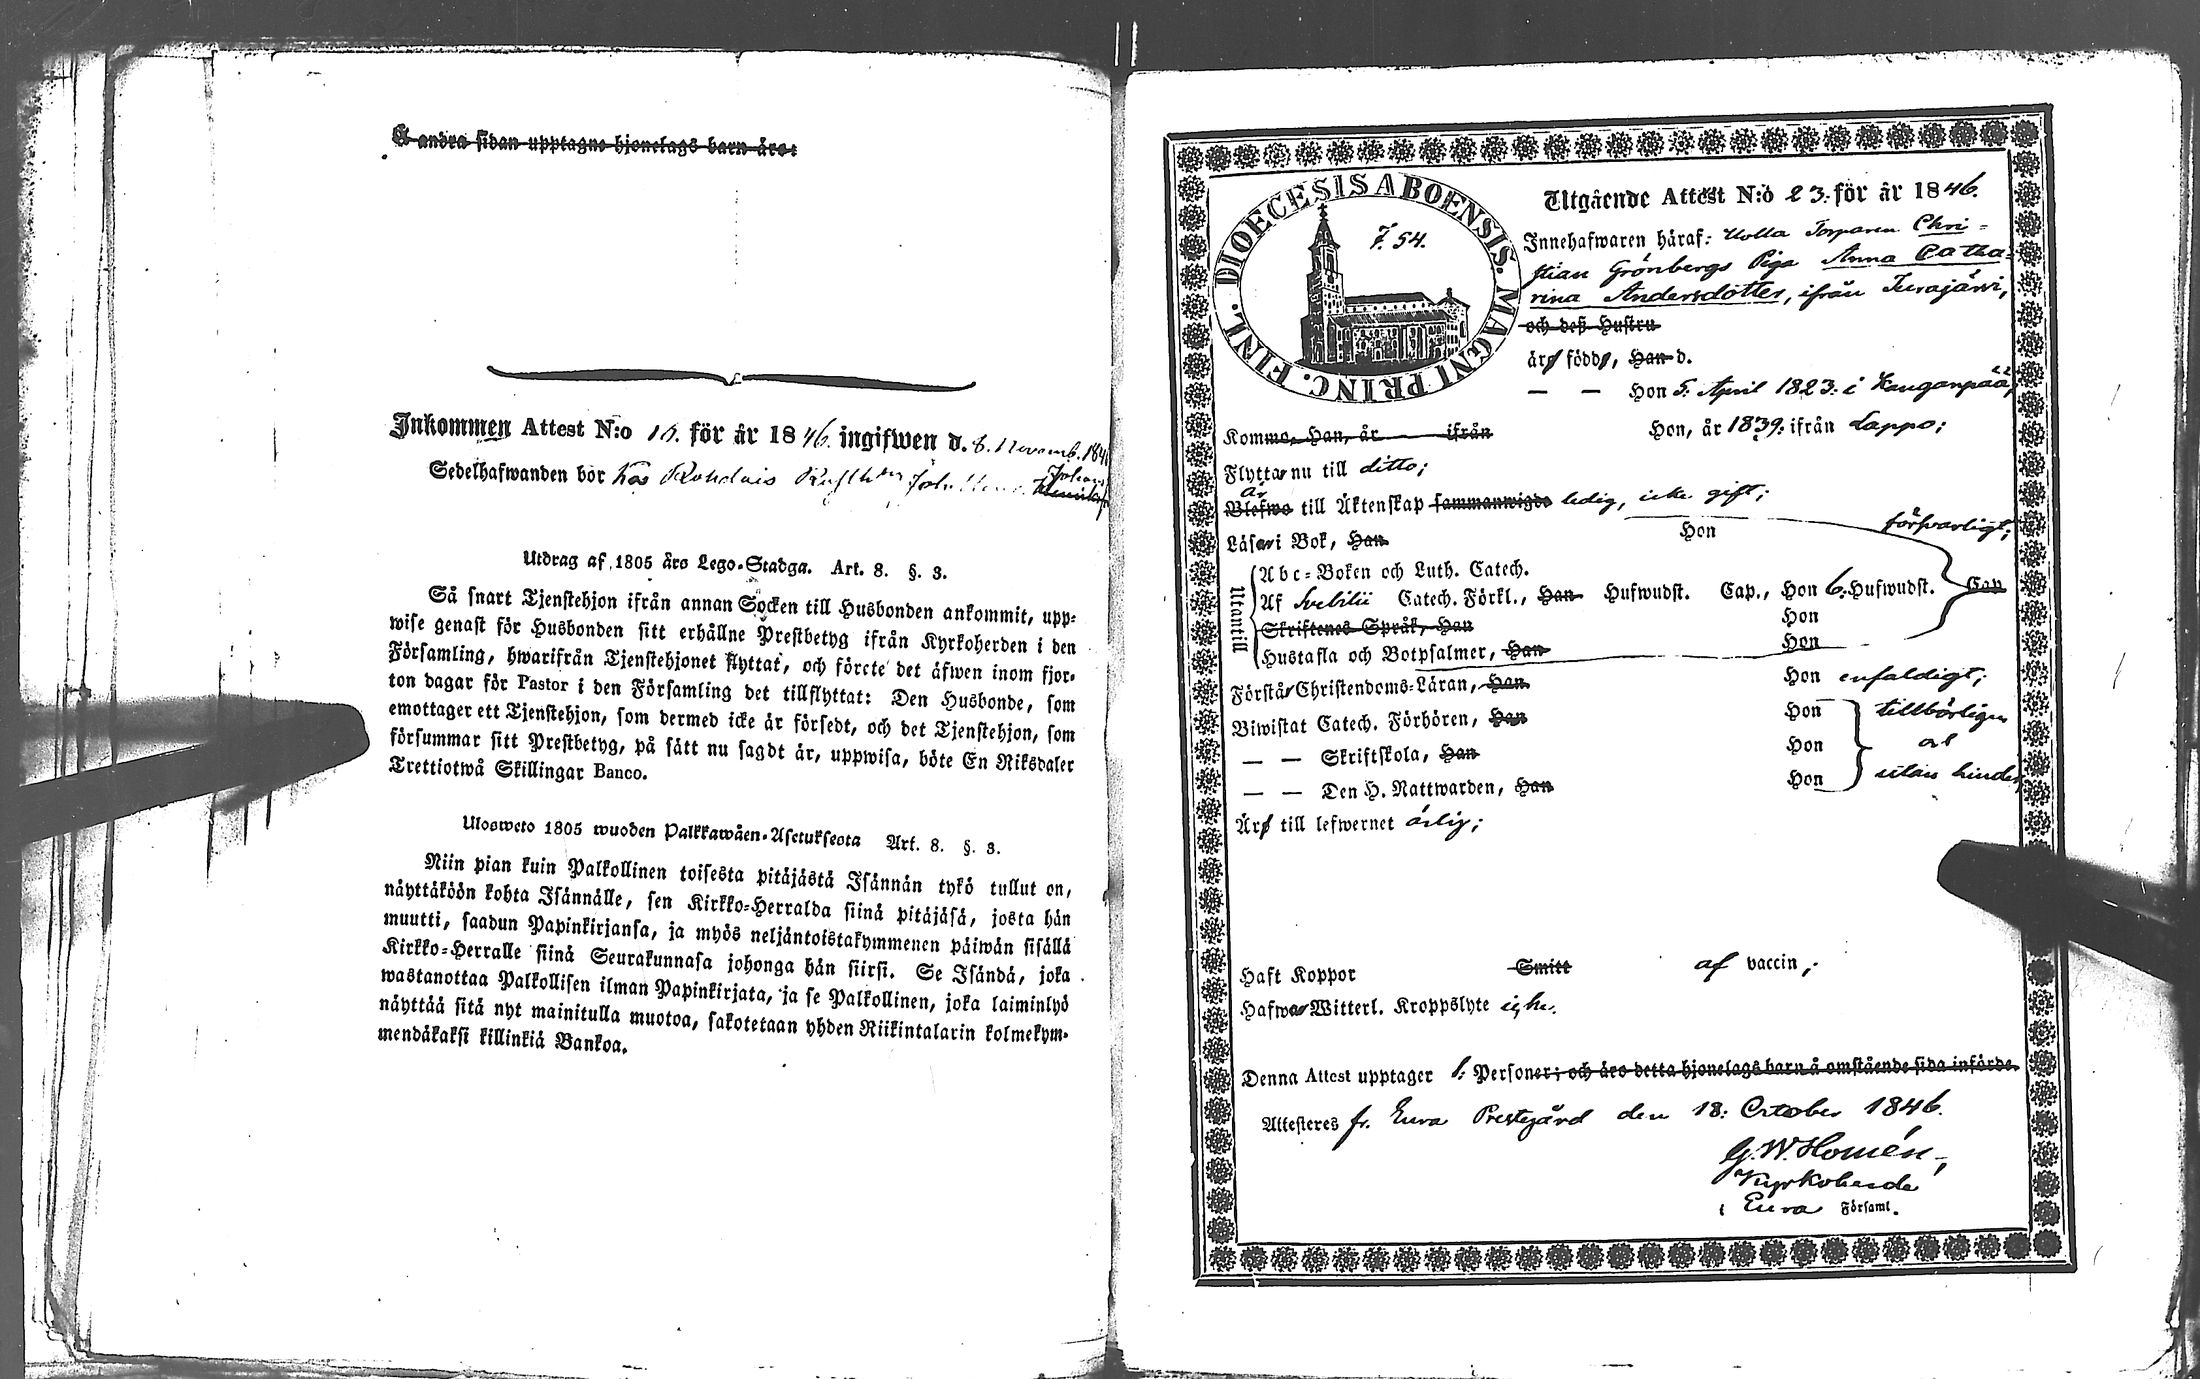 Å andra sidan upptagne hjonelags barn äro:
Inkommen Attest N:o 15. för år 1846. ingifwen d. 8. Novemb. 184
Sedelhafwanden bor hos
Utdrag af 1805 års Lego-Stadga. Art. 8. §. 3.
Så snart Tjenstehjon ifrån annan Socken till Husbonden ankommit, upp-
wise genast för Husbonden sitt erhållne Prestbetyg ifrån Kyrkoherden i den
Församling, hwarifrån Tjenstehjonet flyttat, och förete det äfwen inom fjor-
ton dagar för Pastor i den Församling det tillflyttat: Den Husbonde, som
emottager ett Tjenstehjon, som dermed icke är försedt, och det Tjenstehjon, som
försummar sitt Prestbetyg, på sätt nu sagdt är, uppwisa, böte En Riksdaler
Trettiotwå Skillingar Banco.
Ulosweto 1805 wuoden Palkkawäen-Asetuksesta Art. 8. §. 3.
Niin pian kuin Palkollinen toisesta pitäjästä Isännän tykö tullut on,
näyttäköön kohta Isännälle, sen Kirkko-Herralda siinä pitäjäsä, josta hän
muutti, saadun Papinkirjansa, ja myös neljäntoistakymmenen päiwän sisällä
Kirkko-Herralle siinä Seurakunnasa johonga hän siirsi. Se Isändä, joka
wastanottaa Palkollisen ilman Papinkirjata, ja se Palkollinen, joka laiminlyö
näyttää sitä nyt mainitulla muotoa, sakotetaan yhden Riikintalarin kolmekym-
mendäkaksi killinkiä Bankoa.
DIOECESIS ABOENSIS. MAGNI PRINC. FINL.
F. 54.
Utgående Attest N:o 23. för år 1846.
Innehafwaren häraf: Uolla Torparen Chri-
stian Grönbergs Piga Anna Catha-
rina Andersdotter, ifrån Turajärvi,
och deß Hustru
äro födde, Han d.
— — Hon 5. April 1823. i Kanganpää,
Komma, Han, år ifrån Hon, år 1839. ifrån Lappo;
Flyttar nu till ditto;
är
Blefwo till Äktenskap sammanwigde ledig, icke gift;
Läsa i Bok, Han Hon försvarligt;
Utantill
Abc-Boken och Luth. Catech.
Af Svebilii Catech. Förkl., Han Hufwudst. Cap., Hon 6. Hufwudst. Cap
Skriftenes Språk, Han Hon
Hustafla och Botpsalmer, Han Hon
Förstår Christendoms-Läran, Han Hon enfaldigt;
Biwistat Catech. Förhören, Han Hon tillbörligen
— — Skriftskola, Han Hon och
— — Den H. Nattwarden, Han Hon utan hinder
Äro till lefwernet ärlig;
Haft Koppor Smitt af vaccin;
Hafwa Witterl. Kroppslyte icke.
Denna Attest upptager 1. Personer; och äro detta hjonelags barn å omstående sida införde.
Attesteres fr. Eura Prestegård den 18. October 1846.
G. W. Homén,
Kyrkoherde
i Eura Församl.